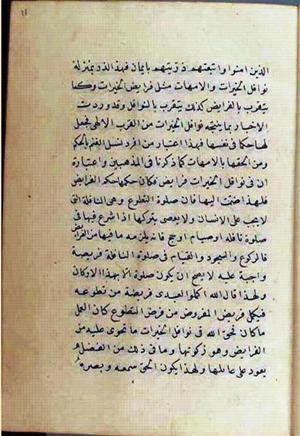 الذين امنوا واتبعتهم ذريتهم بايمان فهذا الذر بمنزلة
نوافل الخيرات والامهات مثل فرايض الخيرات وكما
يتقرب بالفرايض كذلك يتقرب بالنوافل وقد وردت
الاخبار بما ينتجه نوافل الخيرات من القرب الالهي فجعل
لها حكما في نفسها فهذا اعتبار من افرد لنسل الغنم بالحكم
ومن الحقها بالامهات كما ذكرنا في المذهبين واعتباره
ان في نوافل الخيرات فرايض فكان حكمها حكم الفرايض
فلهذا اضفت اليها فان صلوة التطوع وهي النافلة التي
لا يجب على الانسان ولا يعصي بتركها اذا شرع فيها في
صلوة نافلة او صيام او حج فانه يلزمه ما فيها من الفرايض
فالركوع والسجود والقيام في صلوة النافلة فريضة
واجبة عليه لا يصح ان يكون صلوة الا بهذا الاركان
ولهذا قال الله اكملوا لعبدي فريضته من تطوعه
فيكمل فرض المفروض من فرض التطوع كان العمل
ما كان فحق الله في نوافل الخيرات ما تحوى عليه من
الفرايض وهو زكوتها وما في ذلك من الفضل
يعود على عاملها ولهذا يكون الحق سمعه وبصره